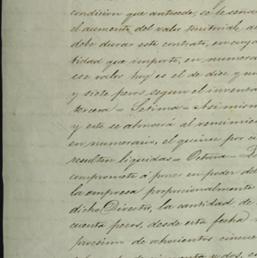 condicion que antecede, se le
el aumento del valor territorial,
debe durar este contrato, en cuya
tidad que importe, en numera
ese valor hoy es el de diez y
y siete pesos, segun el inventa
tercera = Setima = Asi mismo
y este se abonará al vencimien
en numerario, el quince por ci
resulten liquidas = Octava =
compromete á poner en poder del
la empresa proporcionalmente
dicho Director, la cantidad de
cuenta pesos, desde esta fecha
procsimo de ochocientos cincuen